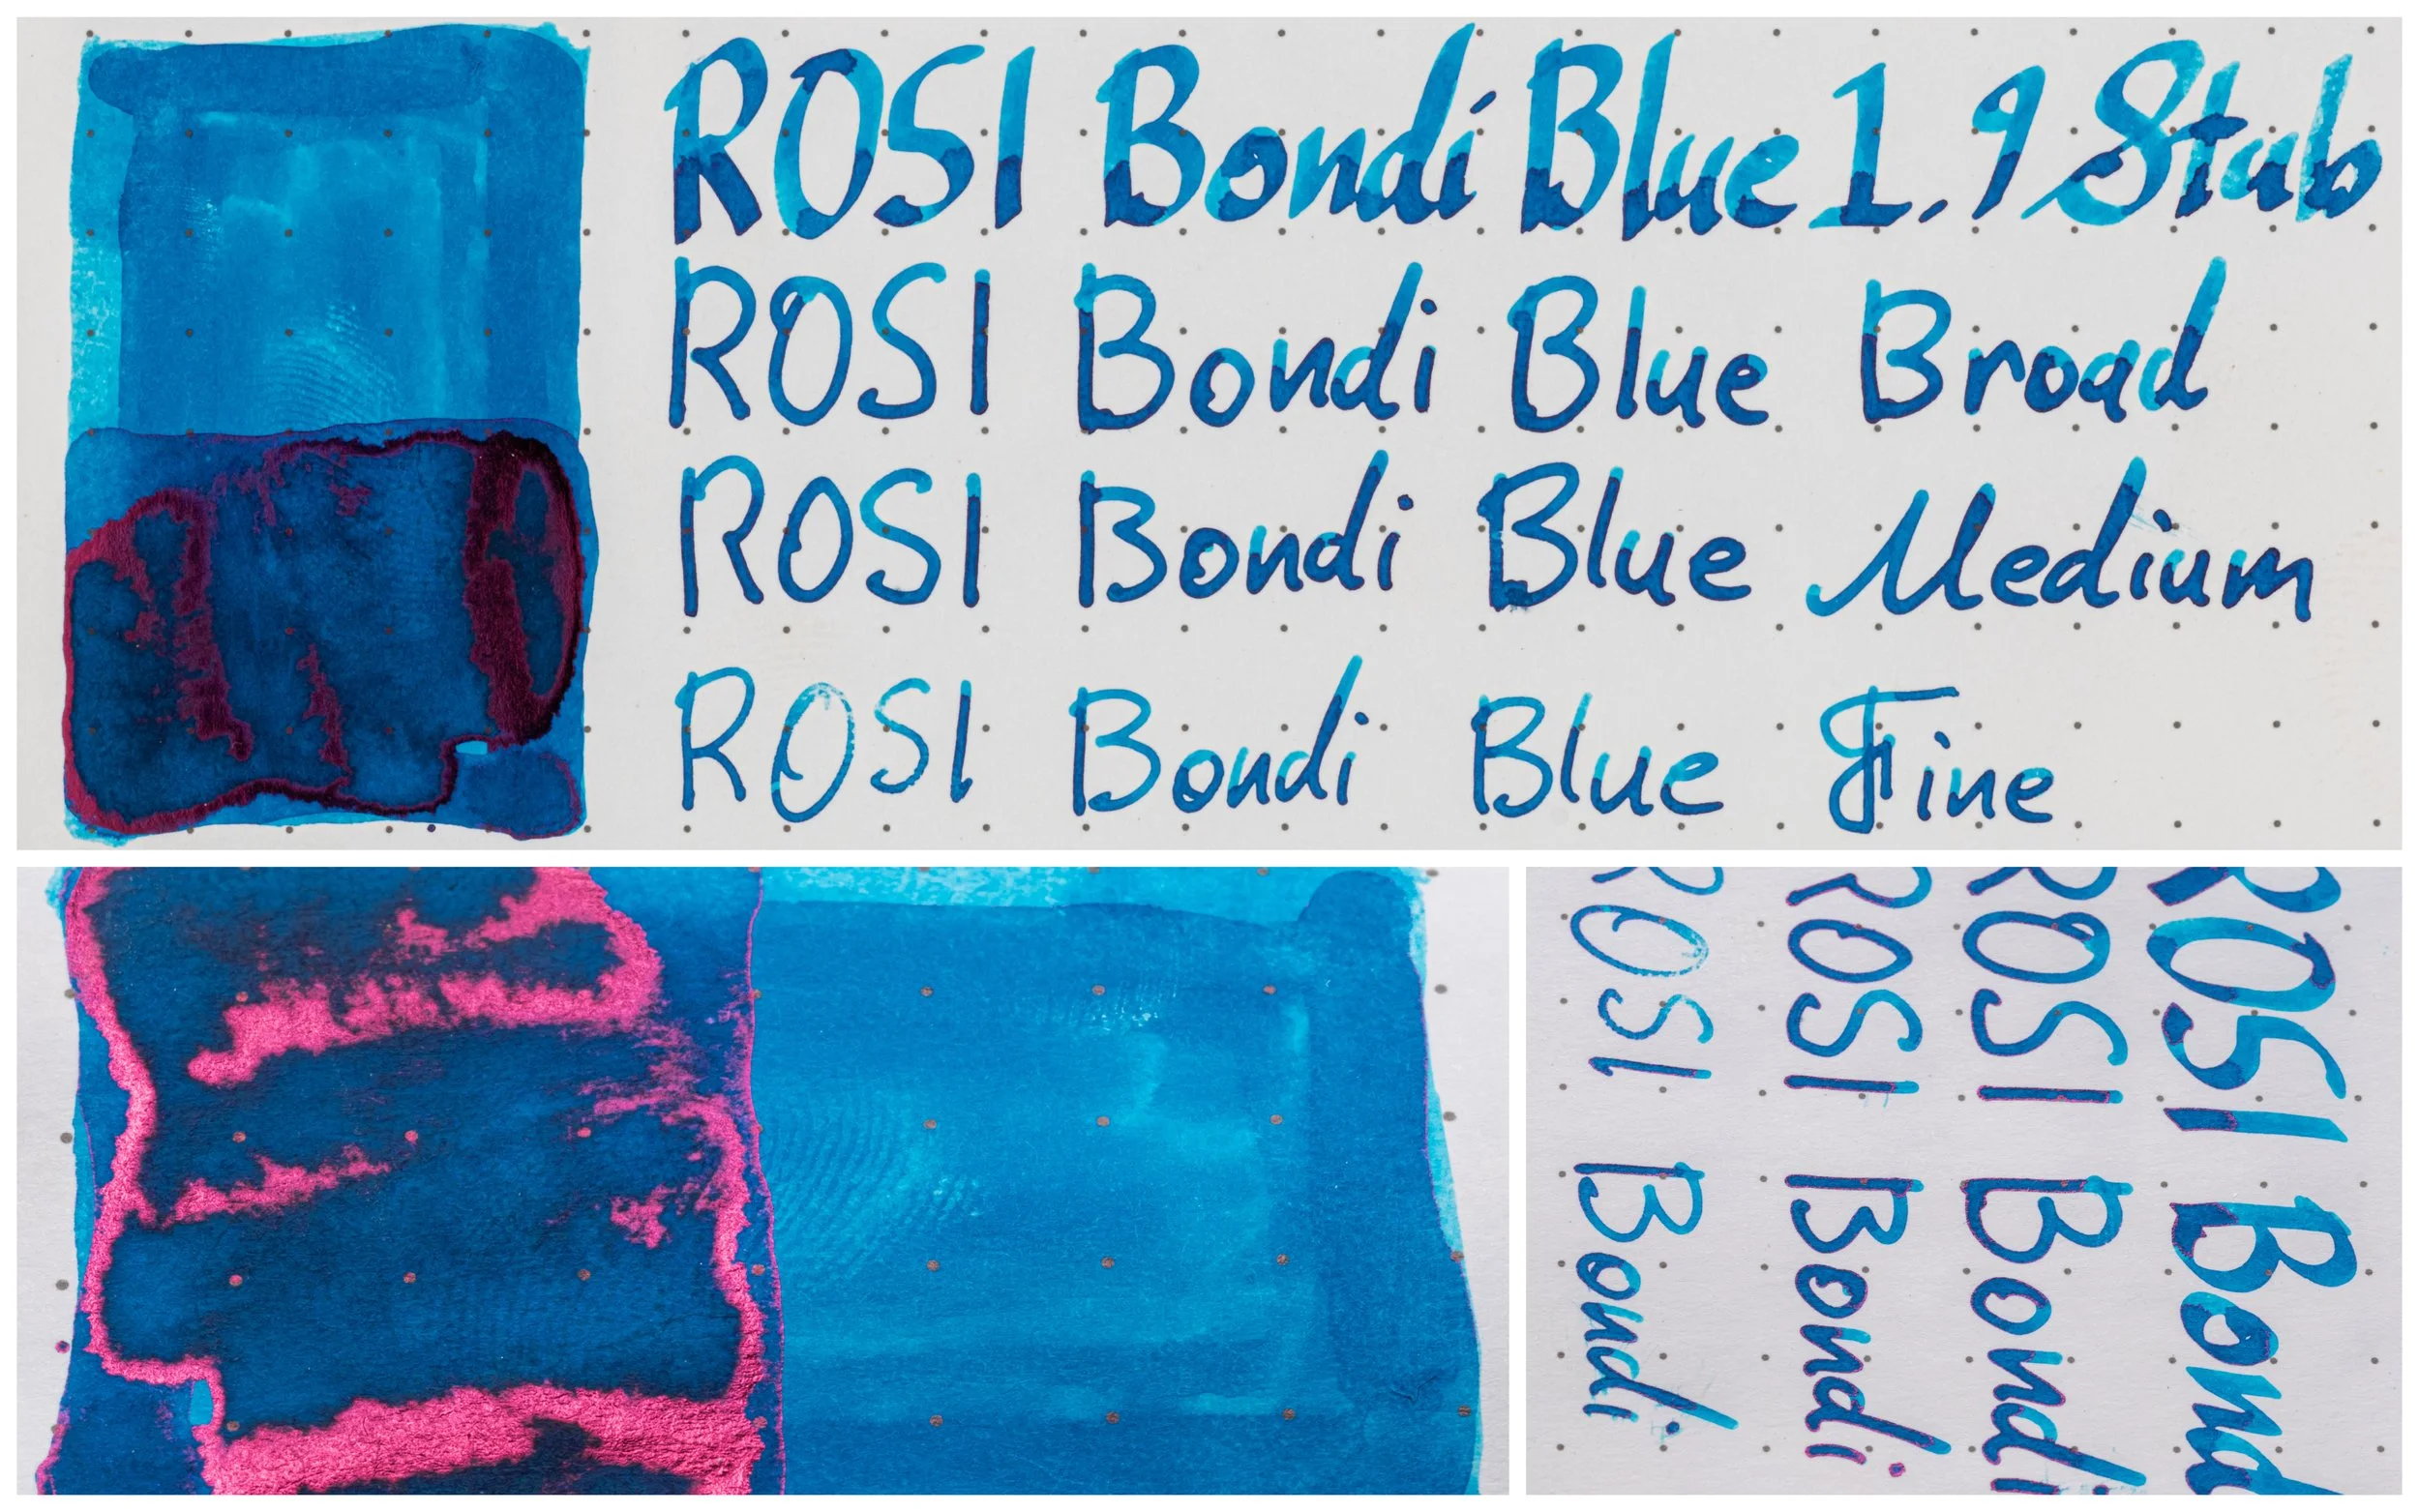 ROSI Bondi Blue 1.9 Stub
ROSI Bondi Blue Broad
ROSI Bondi Blue Medium
ROSI Bondi Blue Fine
ROSI Bond
ROSI Bondi
ROSI Bondi
ROSI Bondi